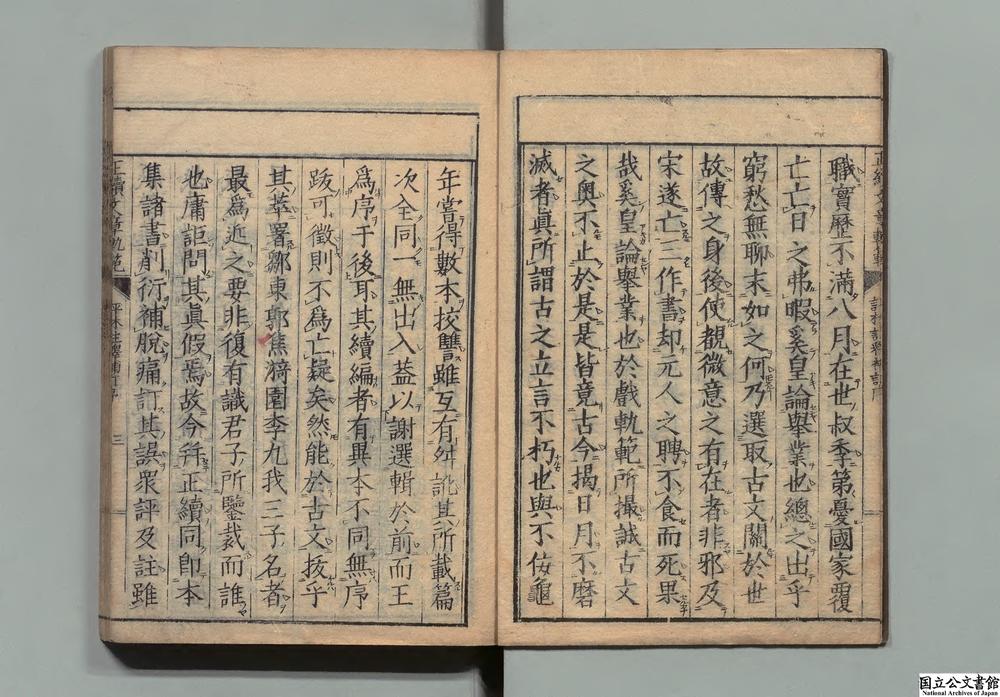 職實歷不滿八月在世叔季第憂國家覆
亡亡日之弗暇奚皇論舉業也總之出乎
窮愁無聊末如之何乃選取古文關於世
故傳之身後使覩微意之有在者非邪及
宋遂亡三作書却元人之聘不食而死果
哉奚皇論舉業也於戲軌範所撮誠古文
之奧不止於是是皆竟古今揭日月不磨
滅者眞所謂古之立言不朽也與不佞龜
年嘗得數本挍讐雖互有舛訛其所載篇
次全同一無出入葢以謝選輯於前而王
爲序于後耳其續編者有異本不同無序
跋可徵則不爲亡疑矣然能於古文抜乎
其萃署鄒東郭焦漪園李九我三子名者
最爲近之要非復有識君子所鑒裁而誰
也庸詎問其眞假焉故今幷正續同卽本
集諸書削衍補脫痛訂其誤衆評及註雖
正續文章軌範
評林註釋補訂序
三
国立公文書館
National Archives of Japan